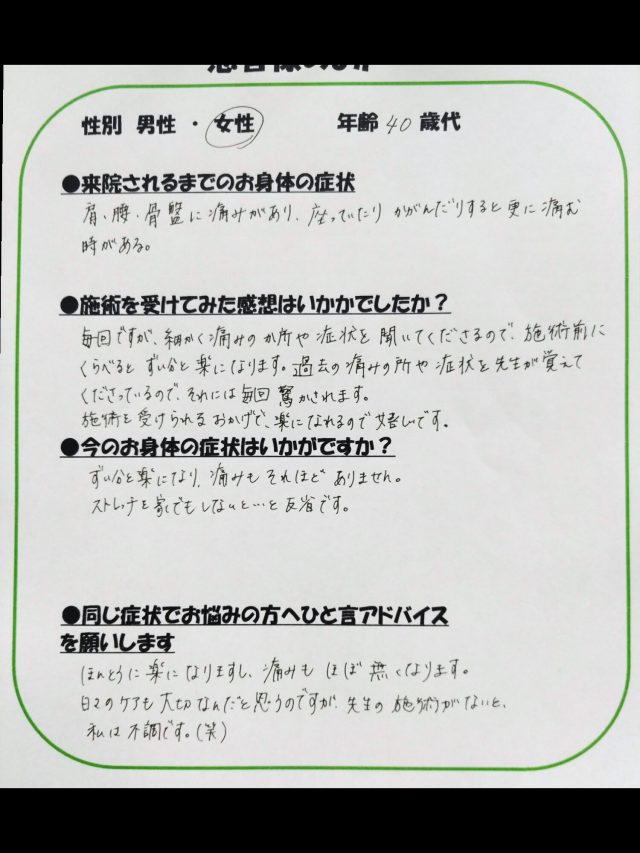 性別 男性 ・ 女性 年齢 40 歳代
●来院されるまでのお身体の症状
肩、腰、骨盤に痛みがあり、座っていたりかがんだりすると更に痛む
時がある。
●施術を受けてみた感想はいかかでしたか？
毎回ですが、細かく痛みのか所や症状を聞いてくださるので、施術前に
くらべるとずい分と楽になります。過去の痛みの所や症状を先生が覚えて
くださっているので、それには毎回驚かされます。
施術を受けられるおかげで、楽になれるので嬉しいです。
●今のお身体の症状はいかがですか？
ずい分と楽になり、痛みもそれほどありません。
ストレッチを家でもしないと…と反省です。
●同じ症状でお悩みの方へひと言アドバイス
を願いします
ほんとうに楽になりますし、痛みもほぼ無くなります。
日々のケアも大切なんだと思うのですが、先生の施術がないと、
私は不調です。(笑)